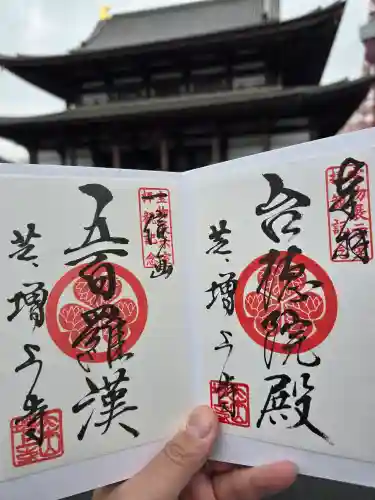 奉拝
台徳院殿
芝 増上寺
五百羅漢
芝 増上寺